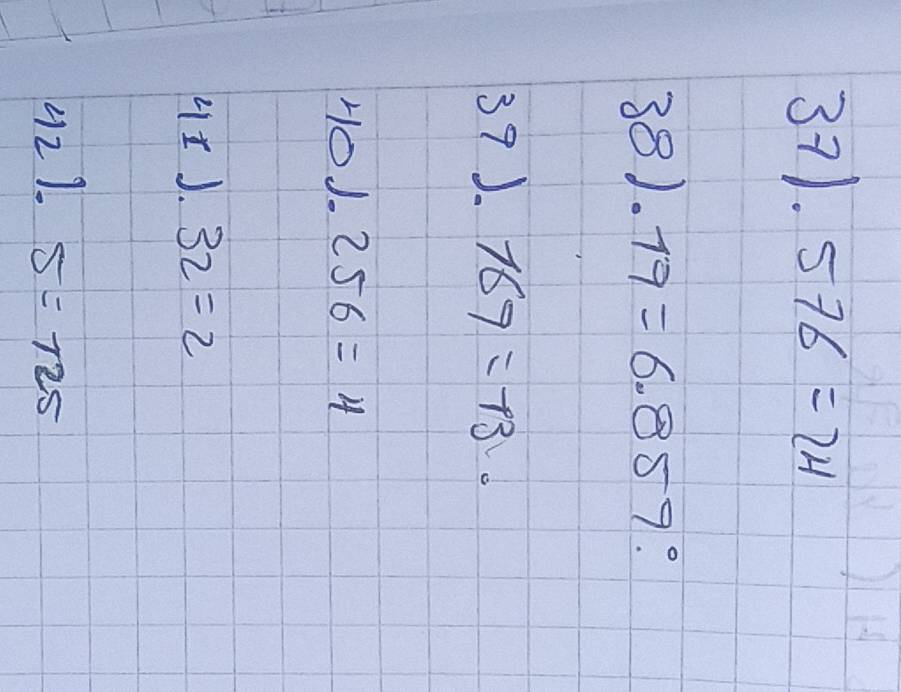 37). 576 = 24
38). 19 = 6.859:
39). 169 = 13.
40). 256 = 4
41). 32 = 2
42). 5 = 125